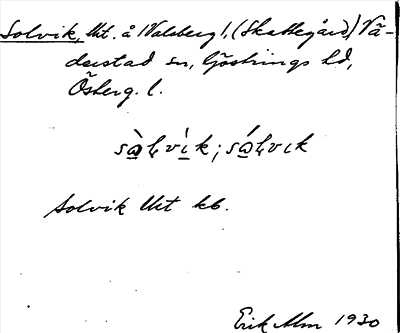 Solvik, Utt. å 1 Valsberg 1, (Skattegård), Vä-
derstad sn, Göstrings hd,
Österg. l.
sòlvìk; sólvık
Solvik Utt kb.
Erik Alm 1930